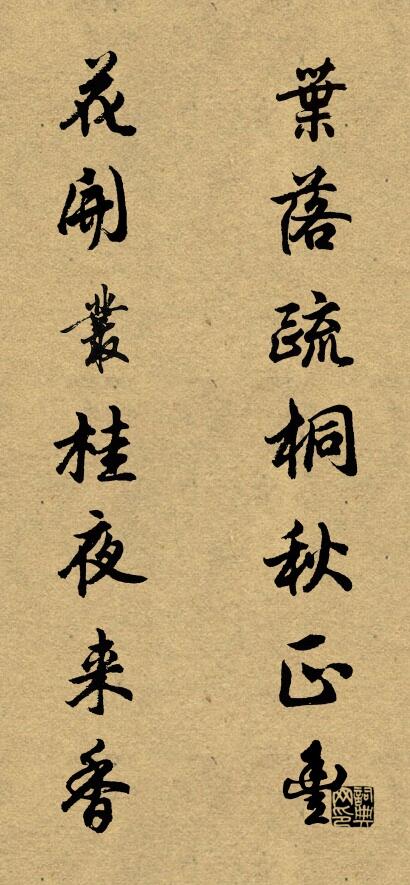 葉落疏桐秋正豐
花開叢桂夜来香
詞典
网印